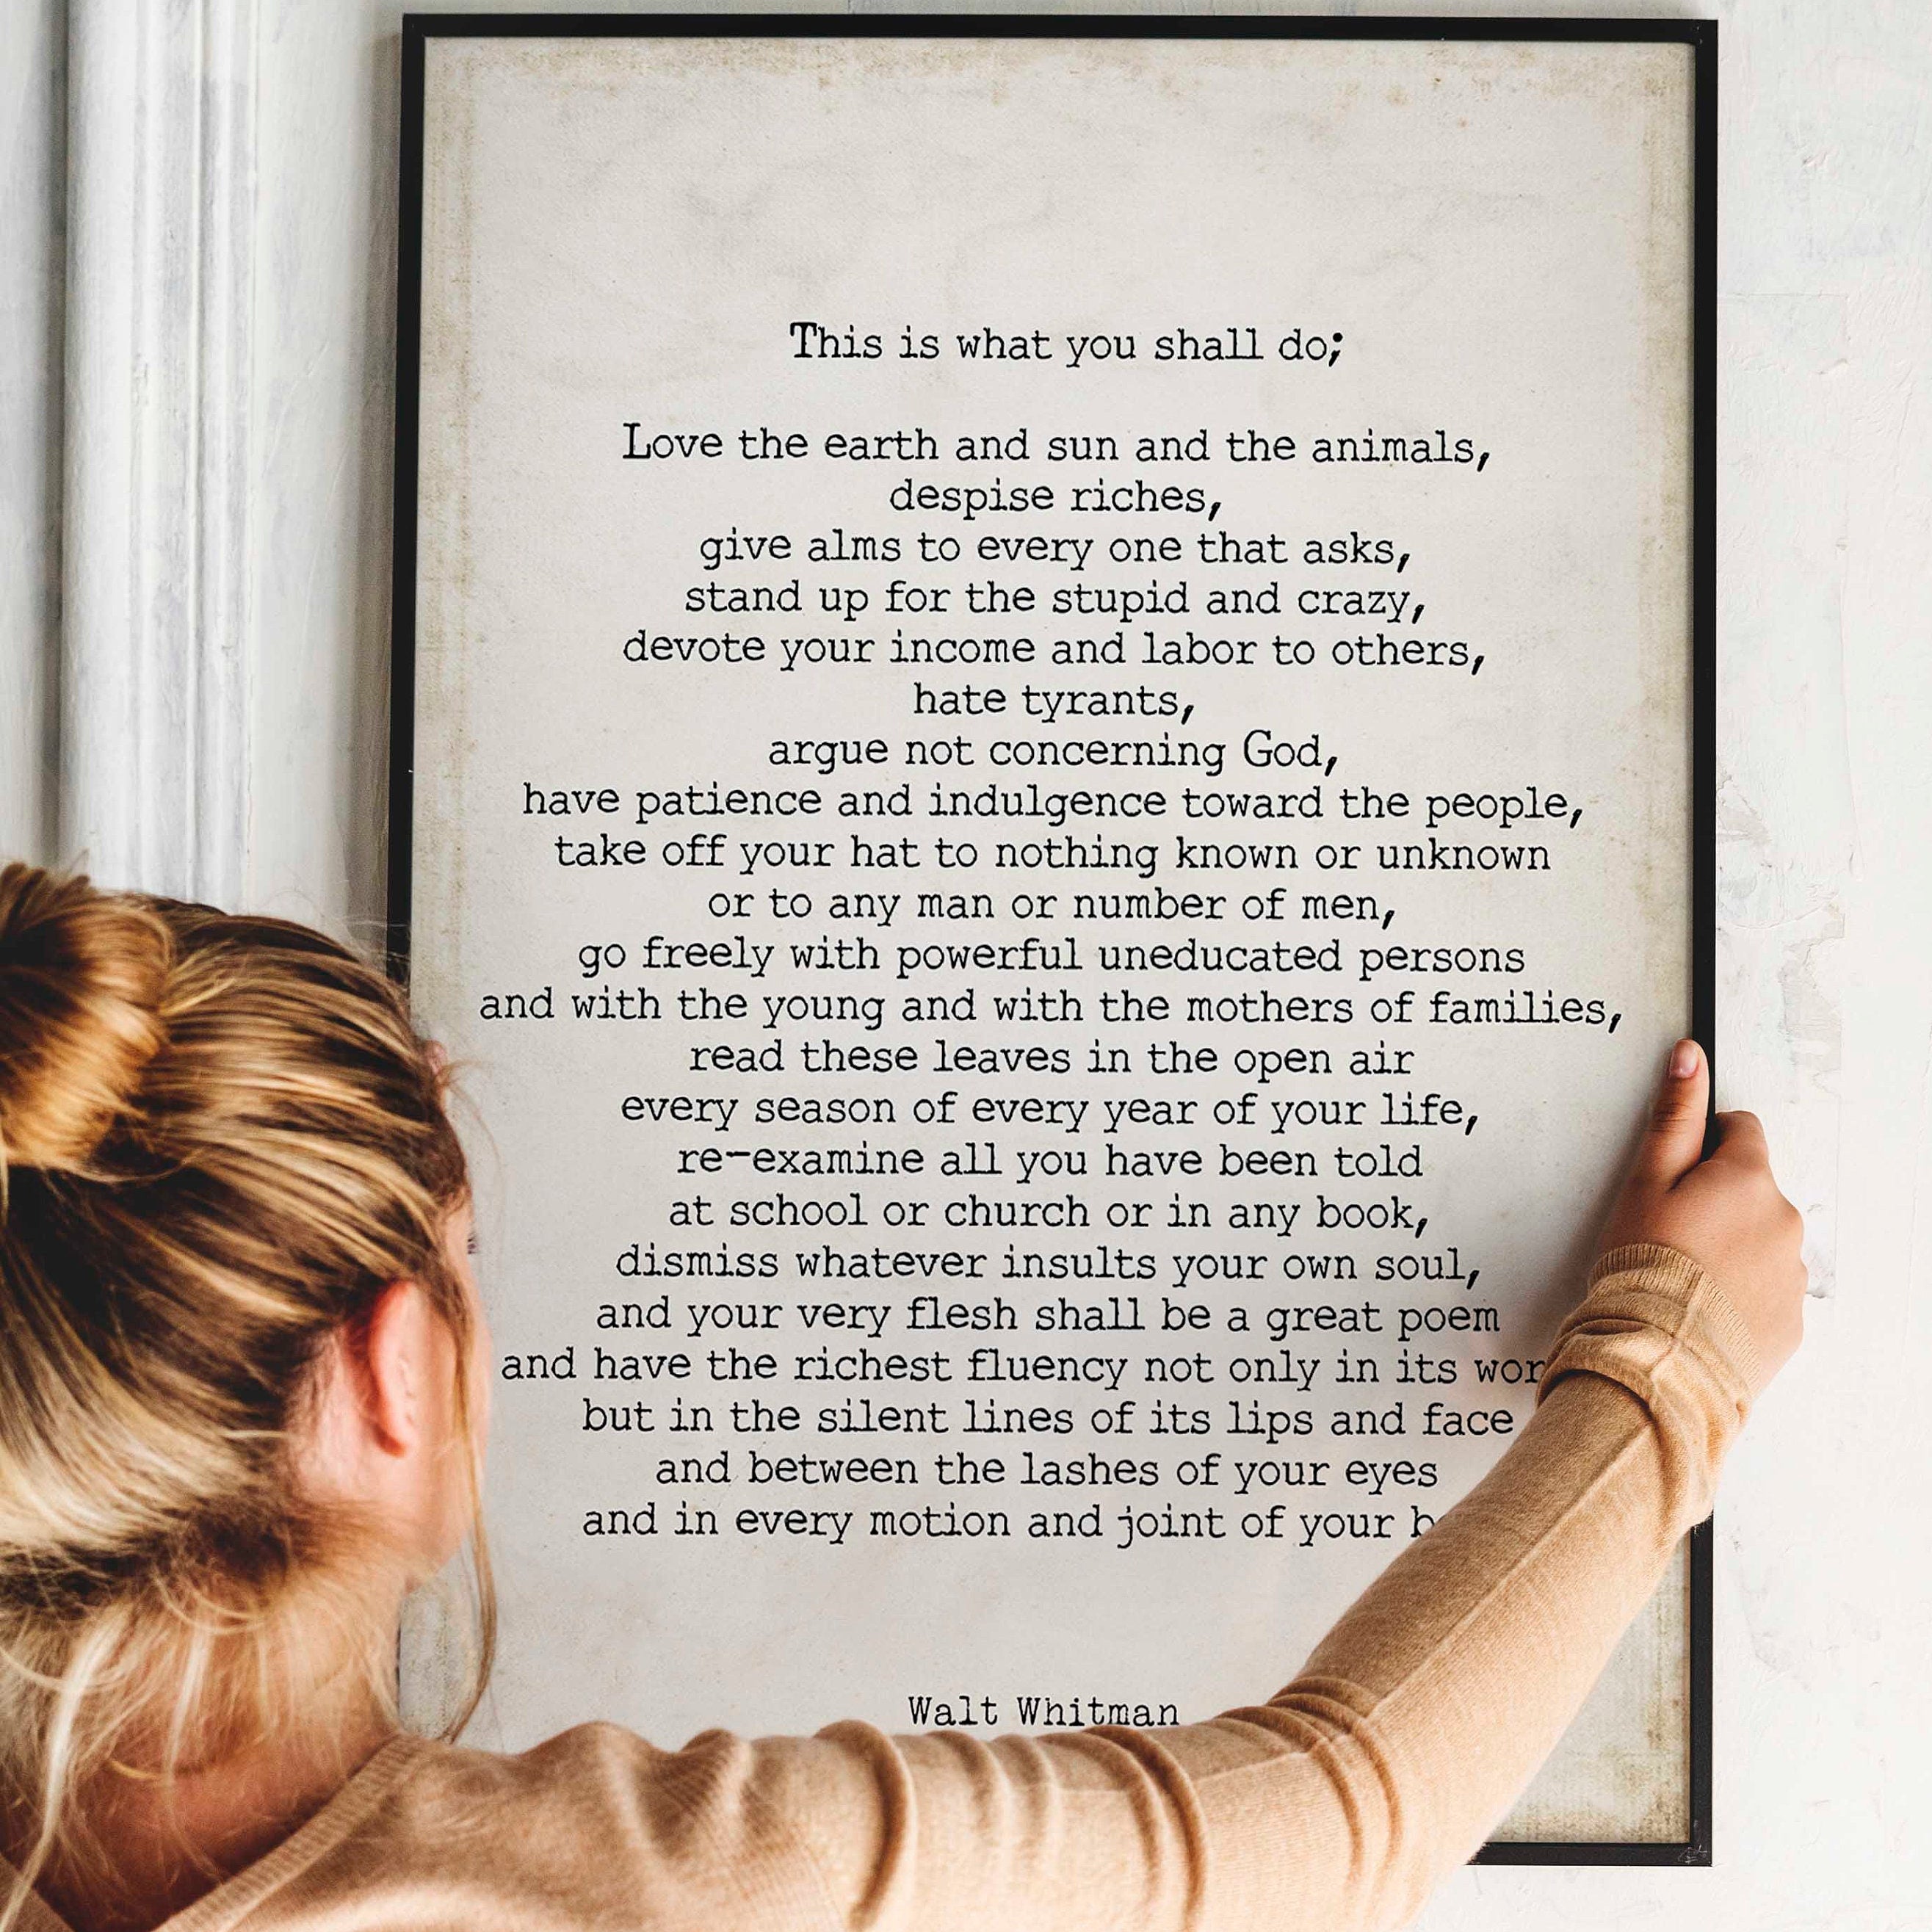 This is what you shall do;
Love the earth and sun and the animals,
despise riches,
give alms to every one that asks,
stand up for the stupid and crazy,
devote your income and labor to others,
hate tyrants,
argue not concerning God,
have patience and indulgence toward the people,
take off your hat to nothing known or unknown
or to any man or number of men,
go freely with powerful uneducated persons
and with the young and with the mothers of families,
read these leaves in the open air
every season of every year of your life,
re-examine all you have been told
at school or church or in any book,
dismiss whatever insults your own soul,
and your very flesh shall be a great poem
and have the richest fluency not only in its
but in the silent lines of its lips and face
and between the lashes of your eyes
and in every motion and joint of your
Walt Whitman